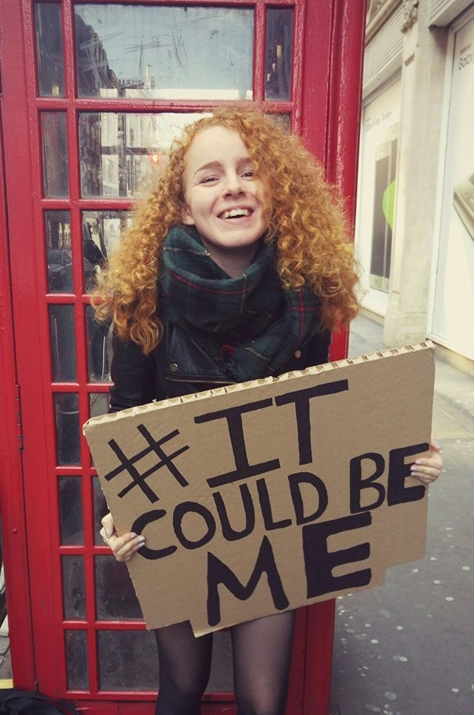 # IT
COULD BE
ME